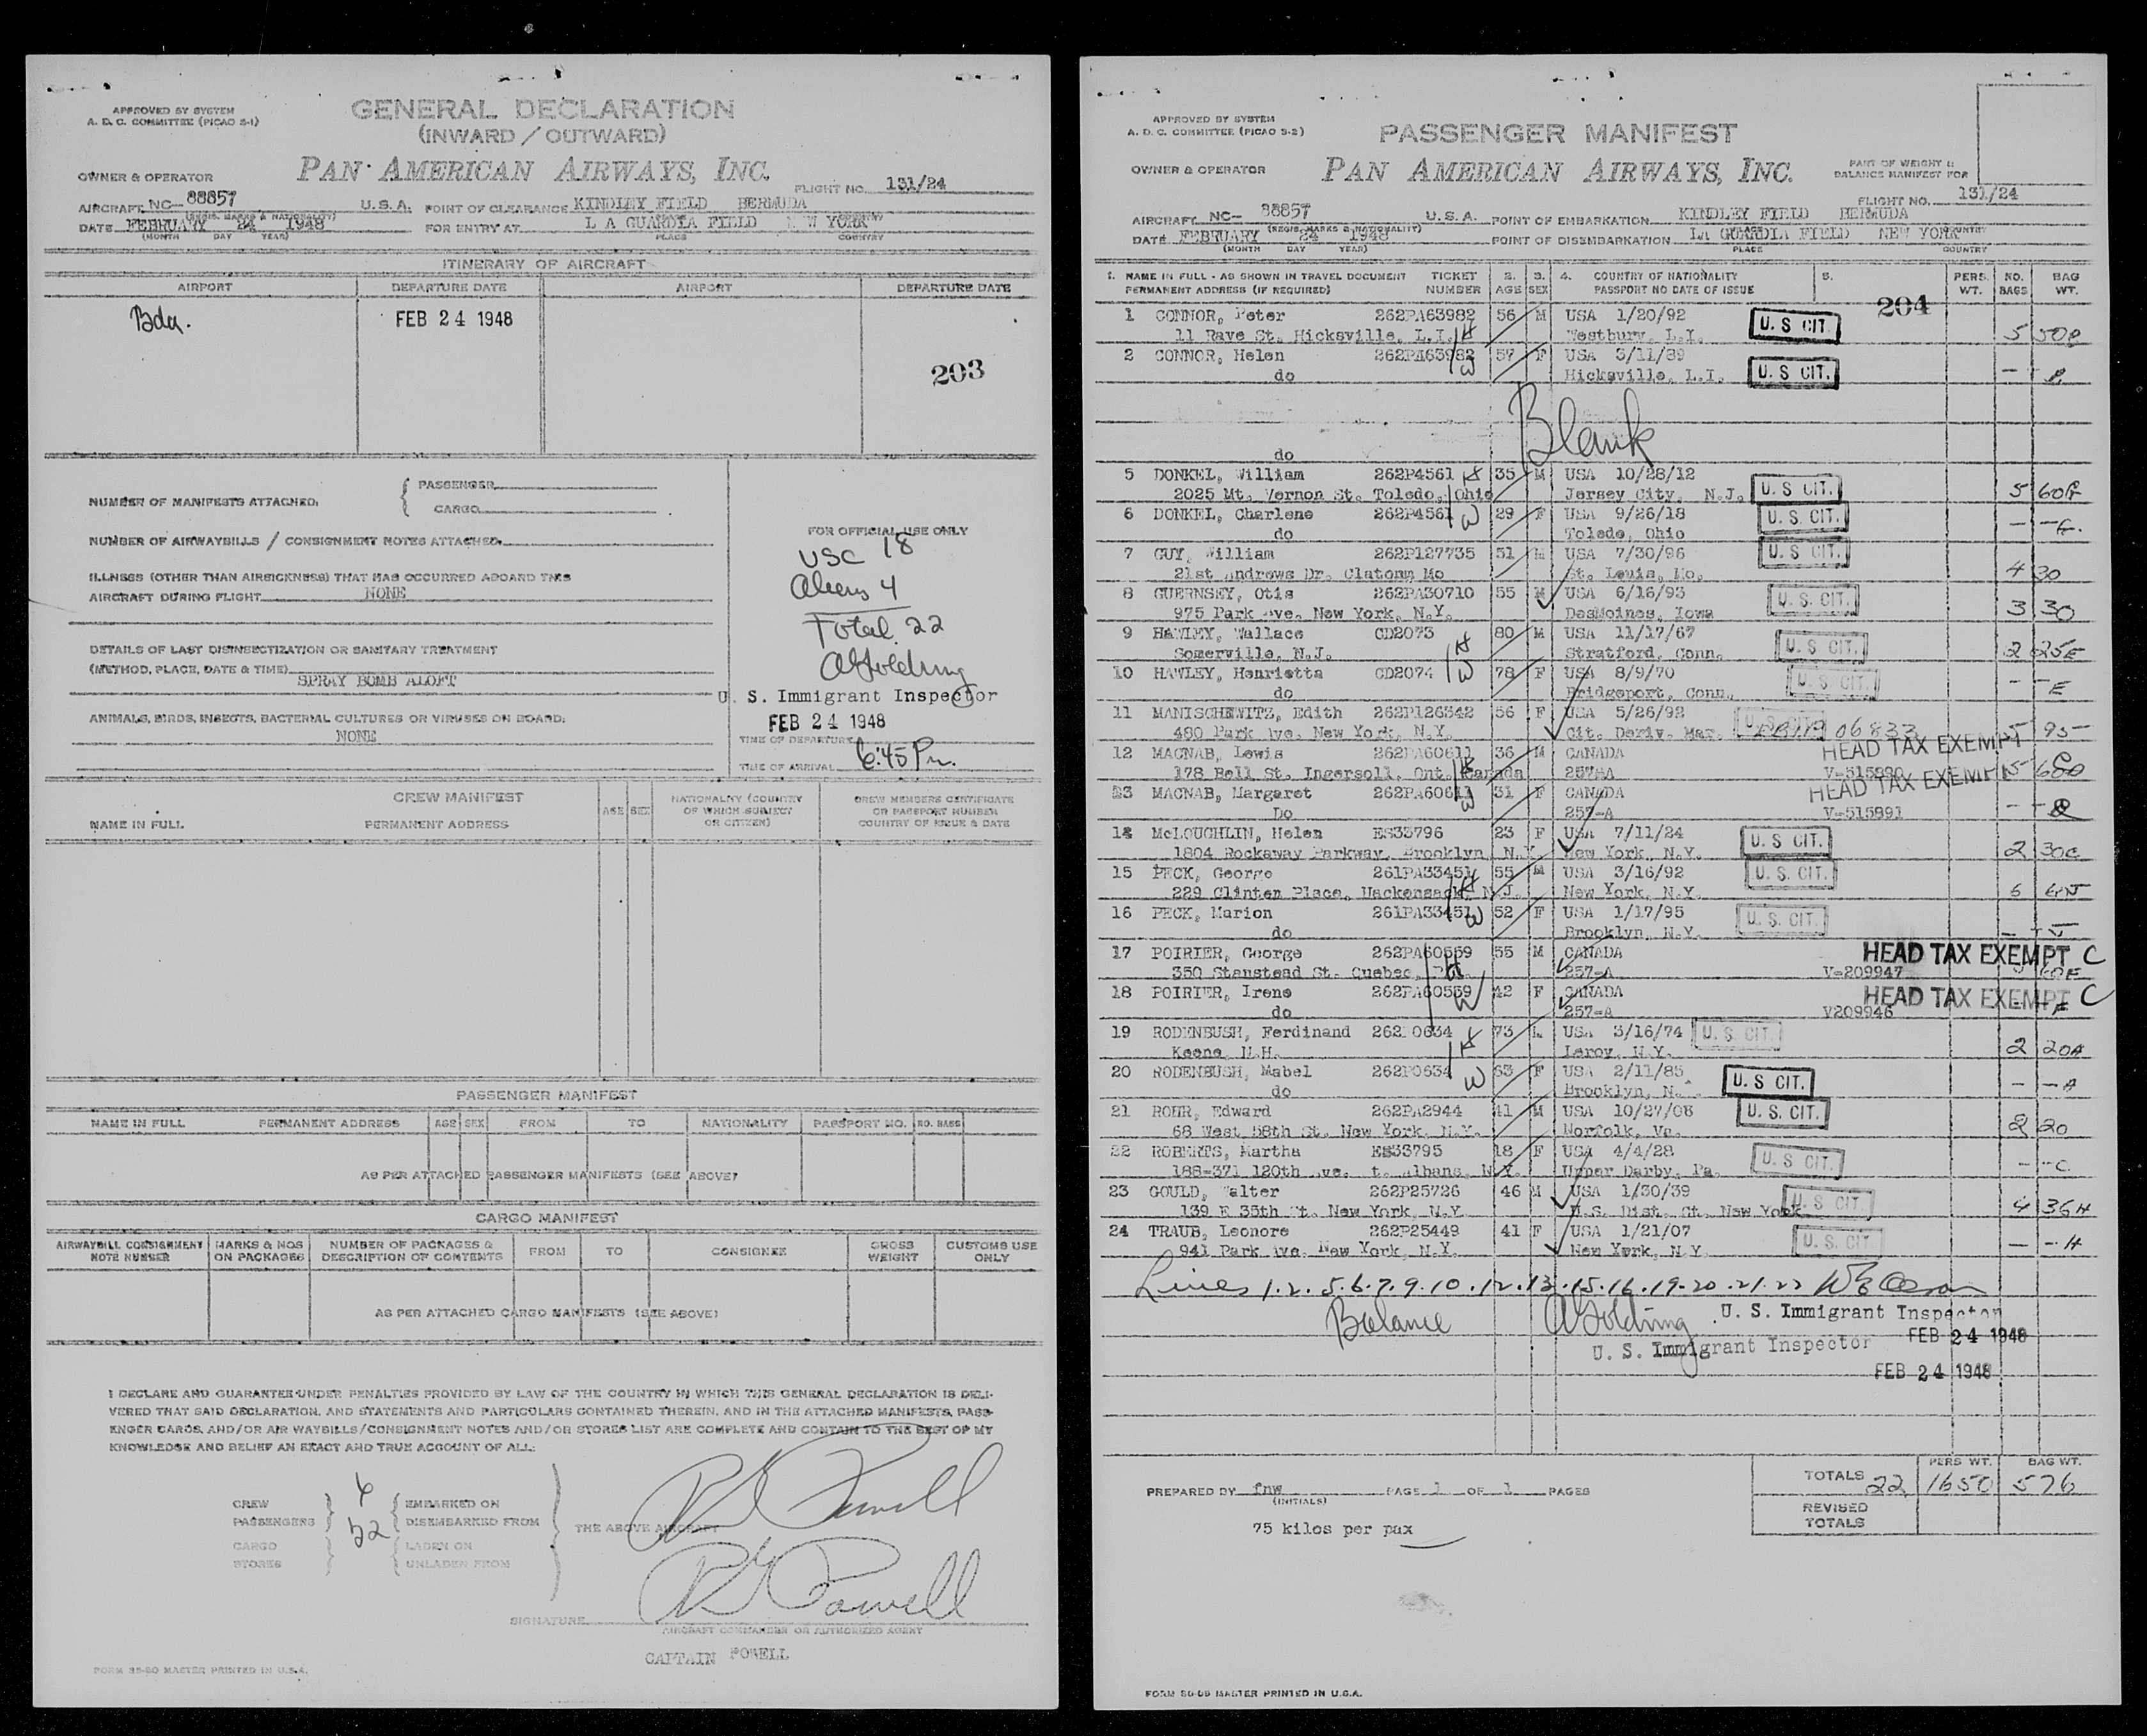 APPROVED BY SYSTEM
A. D. C. COMMITTEE (PICAO 5-1)
GENERAL DECLARATION
(INWARD / OUTWARD)
OWNER & OPERATOR
PAN AMERICAN AIRWAYS, INC.
FLIGHT NO. 131/24
AIRCRAFT NC- 88857 U.S.A. POINT OF CLEARANCE KINDLEY FIELD BERMUDA
(REGIS. MARKS & NATIONALITY) COUNTRY
DATE FEBRUARY 24 1948 FOR ENTRY AT LA GUARDIA FIELD YORK
(MONTH DAY YEAR) PLACE COUNTRY
ITINERARY OF AIRCRAFT
AIRPORT DEPARTURE DATE AIRPORT DEPARTURE DATE
Bda. FEB 24 1948
203
NUMBER OF MANIFESTS ATTACHED. { PASSENGER
CARGO
NUMBER OF AIRWAYBILLS / CONSIGNMENT NOTES ATTACHED.
ILLNESS (OTHER THAN AIRSICKNESS) THAT HAS OCCURRED ABOARD THIS
AIRCRAFT DURING FLIGHT NONE
DETAILS OF LAST DISINSECTIZATION OR SANITARY TREATMENT
(METHOD, PLACE, DATE & TIME)
SPRAY BOMB ALOFT
ANIMALS, BIRDS, INSECTS, BACTERIAL CULTURES OR VIRUSES ON BOARD:
NONE
FOR OFFICIAL USE ONLY
USC 18
Aliens 4
Total 22
A Goldring
U. S. Immigrant Inspector
FEB 24 1948
TIME OF DEPARTURE
TIME OF ARRIVAL 6:45 Pm.
CREW MANIFEST
NAME IN FULL PERMANENT ADDRESS AGE SEX NATIONALITY (COUNTRY OF WHICH SUBJECT OR CITIZEN) CREW MEMBERS CERTIFICATE OR PASSPORT NUMBER COUNTRY OF ISSUE & DATE
PASSENGER MANIFEST
NAME IN FULL PERMANENT ADDRESS AGE SEX FROM TO NATIONALITY PASSPORT NO. NO. BAGS
AS PER ATTACHED PASSENGER MANIFESTS (SEE ABOVE)
CARGO MANIFEST
AIRWAYBILL CONSIGNMENT NOTE NUMBER MARKS & NOS ON PACKAGES NUMBER OF PACKAGES & DESCRIPTION OF CONTENTS FROM TO CONSIGNEE GROSS WEIGHT CUSTOMS USE ONLY
AS PER ATTACHED CARGO MANIFESTS (SEE ABOVE)
I DECLARE AND GUARANTEE UNDER PENALTIES PROVIDED BY LAW OF THE COUNTRY IN WHICH THIS GENERAL DECLARATION IS DELI-
VERED THAT SAID DECLARATION, AND STATEMENTS AND PARTICULARS CONTAINED THEREIN, AND IN THE ATTACHED MANIFESTS, PASS-
ENGER CARDS, AND/OR AIR WAYBILLS/CONSIGNMENT NOTES AND/OR STORES LIST ARE COMPLETE AND CONTAIN TO THE BEST OF MY
KNOWLEDGE AND BELIEF AN EXACT AND TRUE ACCOUNT OF ALL:
CREW EMBARKED ON
PASSENGERS 22 DISEMBARKED FROM THE ABOVE AIRCRAFT
CARGO LADEN ON
STORES UNLADEN FROM
SIGNATURE
AIRCRAFT COMMANDER OR AUTHORIZED AGENT
CAPTAIN POWELL
FORM 35-50 MASTER PRINTED IN U.S.A.
APPROVED BY SYSTEM
A. D. C. COMMITTEE (PICAO 5-2)
PASSENGER MANIFEST
OWNER & OPERATOR
PAN AMERICAN AIRWAYS, INC.
PART OF WEIGHT &
BALANCE MANIFEST FOR
FLIGHT NO. 131/24
AIRCRAFT NC- 88857 U.S.A. POINT OF EMBARKATION KINDLEY FIELD BERMUDA
(REGIS. MARKS & NATIONALITY)
DATE FEBRUARY 24 1948 POINT OF DISEMBARKATION LA GUARDIA FIELD NEW YORK
(MONTH DAY YEAR) PLACE COUNTRY
1. NAME IN FULL - AS SHOWN IN TRAVEL DOCUMENT TICKET 2. 3. 4. COUNTRY OF NATIONALITY 5. PERS. NO. BAG
PERMANENT ADDRESS (IF REQUIRED) NUMBER AGE SEX PASSPORT NO DATE OF ISSUE WT. BAGS WT.
204
1 CONNOR, Peter 262PA63982 56 M USA 1/20/92 U. S CIT.
11 Rave St. Hicksville, L.I. H Westbury, L.I. 5 50
2 CONNOR, Helen 262PA63982 W 57 F USA 3/11/89
do Hicksville, L.I. U. S CIT.
Blank
do
5 DONKEL, William 262P4561 H 35 M USA 10/28/12
2025 Mt. Vernon St. Toledo, Ohio Jersey City, N.J. U. S CIT. 5 60
6 DONKEL, Charlene 262P4561 W 29 F USA 9/26/18 U. S. CIT.
do Toledo, Ohio
7 GUY, William 262P127735 51 M USA 7/30/96 U. S CIT.
21st Andrews Dr. Clatonm Mo St. Louis, Mo. 4 30
8 GUERNSEY, Otis 262PA30710 55 M USA 6/16/93 U. S. CIT.
975 Park Ave. New York, N.Y. DesMoines, Iowa 3 30
9 HAWLEY, Wallace CD2073 80 M USA 11/17/67
Somerville, N.J. H Stratford, Conn. U. S CIT. 2 25E
10 HAWLEY, Henrietta CD2074 W 78 F USA 8/9/70 U. S CIT.
do Bridgeport, Conn. E
11 MANISCHEWITZ, Edith 262P126342 56 F USA 5/26/92
480 Park Ave. New York, N.Y. Cit. Deriv. Mar. 06833 5 95
12 MACNAB, Lewis 262PA60611 36 M CANADA HEAD TAX EXEMPT
178 Bell St. Ingersoll, Ont. Canada 257-A 5 68
13 MACNAB, Margaret 262PA60611 W 31 F CANADA HEAD TAX EXEMPT
Do 257-A V-515891
14 McLOUGHLIN, Helen ES33796 23 F USA 7/11/24 U. S CIT.
1804 Rockaway Parkway, Brooklyn, N.Y. New York, N.Y. 2 30C
15 PECK, George 261PA33451 55 M USA 3/16/92 U. S. CIT.
229 Clinton Place, Hackensack, N.J. New York, N.Y. 6
16 PECK, Marion 261PA33451 W 52 F USA 1/17/95 U. S. CIT.
do Brooklyn, N.Y.
17 POIRIER, George 262PA60559 55 M CANADA HEAD TAX EXEMPT C
350 Stanstead St. Quebec, H 257-A V-209947
18 POIRIER, Irene 262PA60559 W 42 F CANADA HEAD TAX EXEMPT C
do 257-A V209946
19 RODENBUSH, Ferdinand 73 USA 3/16/74 U. S. CIT.
Keene, N.H. H Leroy, N.Y. 2 20A
20 RODENBUSH, Mabel W 63 F USA 2/11/85 U. S CIT.
do Brooklyn, N. A
21 ROHR, Edward 262PA2944 41 M USA 10/27/06 U. S. CIT.
68 West 58th St. New York, N.Y. Norfolk, Va. 2 20
22 ROBERTS, Martha ES33795 18 F USA 4/4/28 U. S CIT.
188-371 120th Ave. t. Albans, N.Y. Upper Darby, Pa. C.
23 GOULD, Walter 262P25726 46 M USA 1/30/39 U. S CIT.
139 E 35th St. New York, N.Y U.S. Dist. Ct. New York 4 36H
24 TRAUB, Leonore 262P25449 41 F USA 1/21/07 U. S. CIT.
941 Park Ave. New York, N.Y. New York, N.Y. H
Lines 1.2.5.6.7.9.10.12.13.15.16.19-20.21.22
Balance A Goldring U. S. Immigrant Inspector
U. S. Immigrant Inspector FEB 24 1948
FEB 24 1948
TOTALS 22 PERS WT. 1650 BAG WT. 576
REVISED
TOTALS
PREPARED BY fnw PAGE 1 OF 1 PAGES
(INITIALS)
75 kilos per pax
MASTER PRINTED IN U.S.A.